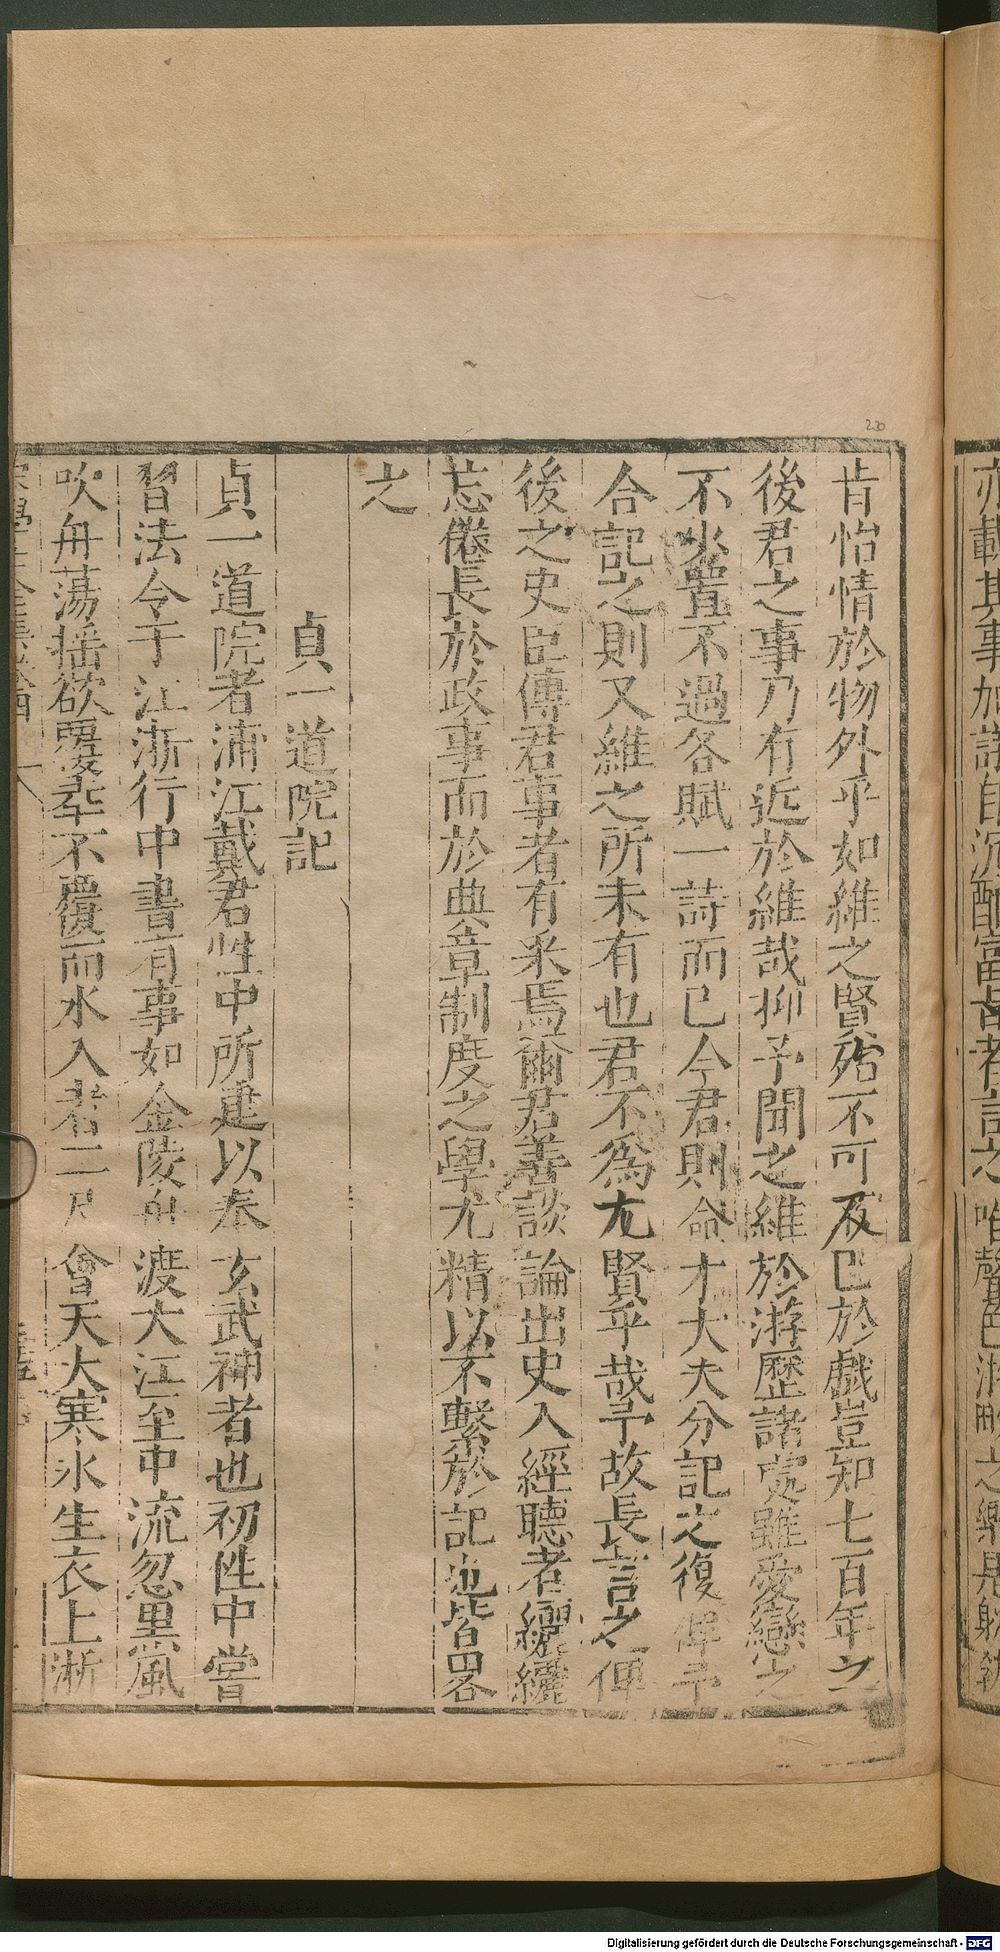 亦載其事加
肯怡情於物外乎如維之賢殆不可及已於戲豈知七百年之
後君之事乃有近於維哉抑予聞之維於游歷諸處雖愛戀之
不置不過各賦一詩而已今君則命才大夫分記之復俾予
合記之則又維之所未有也君不為尤賢乎哉予故長言之俾
後之史臣傳君事者有采焉爾君善談論出史入經聽者纚纚
忘倦長於政事而於典章制度之學尤精以不繫於記也皆畧
之
貞一道院記
貞一道院者浦江戴君性中所建以奉玄武神者也初性中嘗
習法令于江浙行中書有事如金陵舟渡大江至中流忽黑風
吹舟蕩揺欲覆幸不覆而水入者二尺會天大寒氷生衣上淅
230
Digitalisierung gefördert durch die Deutsche Forschungsgemeinschaft - DFG